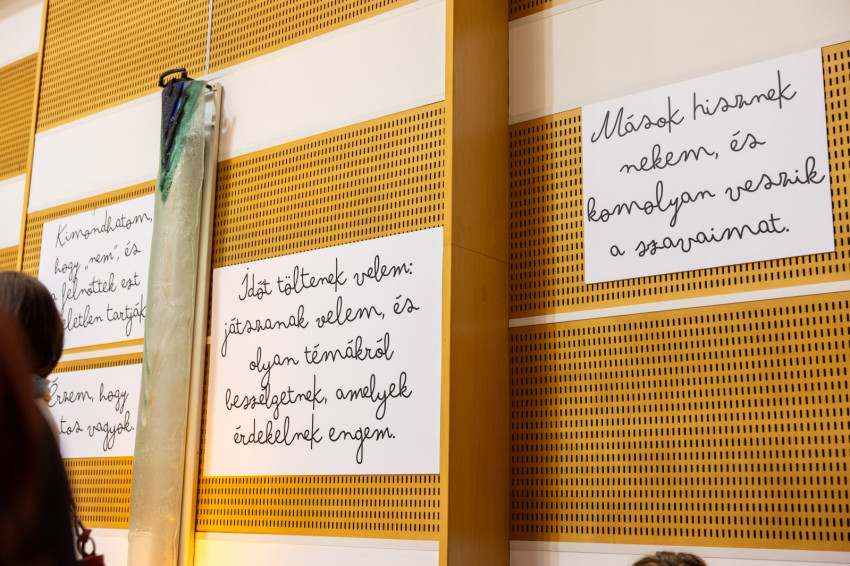 Kimondhatom,
hogy „nem”, és
felnőttek ezt
tartják
Érzem, hogy
vagyok.
Időt töltenek velem:
játszanak velem, és
olyan témákról
beszélgetnek, amelyek
érdekelnek engem.
Mások hisznek
nekem, és
komolyan veszik
a szavaimat.